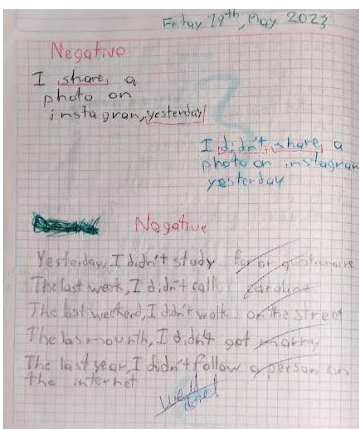 Friday 19th, May 2023
Negative
I share, a
photo on
instagran, yesterday
I didn't share, a
photo on instagran
yesterday
Negative
Yesterday, I didn't study for a questionnaire
The last week, I didn't call Caroline
The last weekend, I didn't walk on the street
The las mounth, I didn't got marry
The last year, I didn't follow a person on
the internet
Well
done!